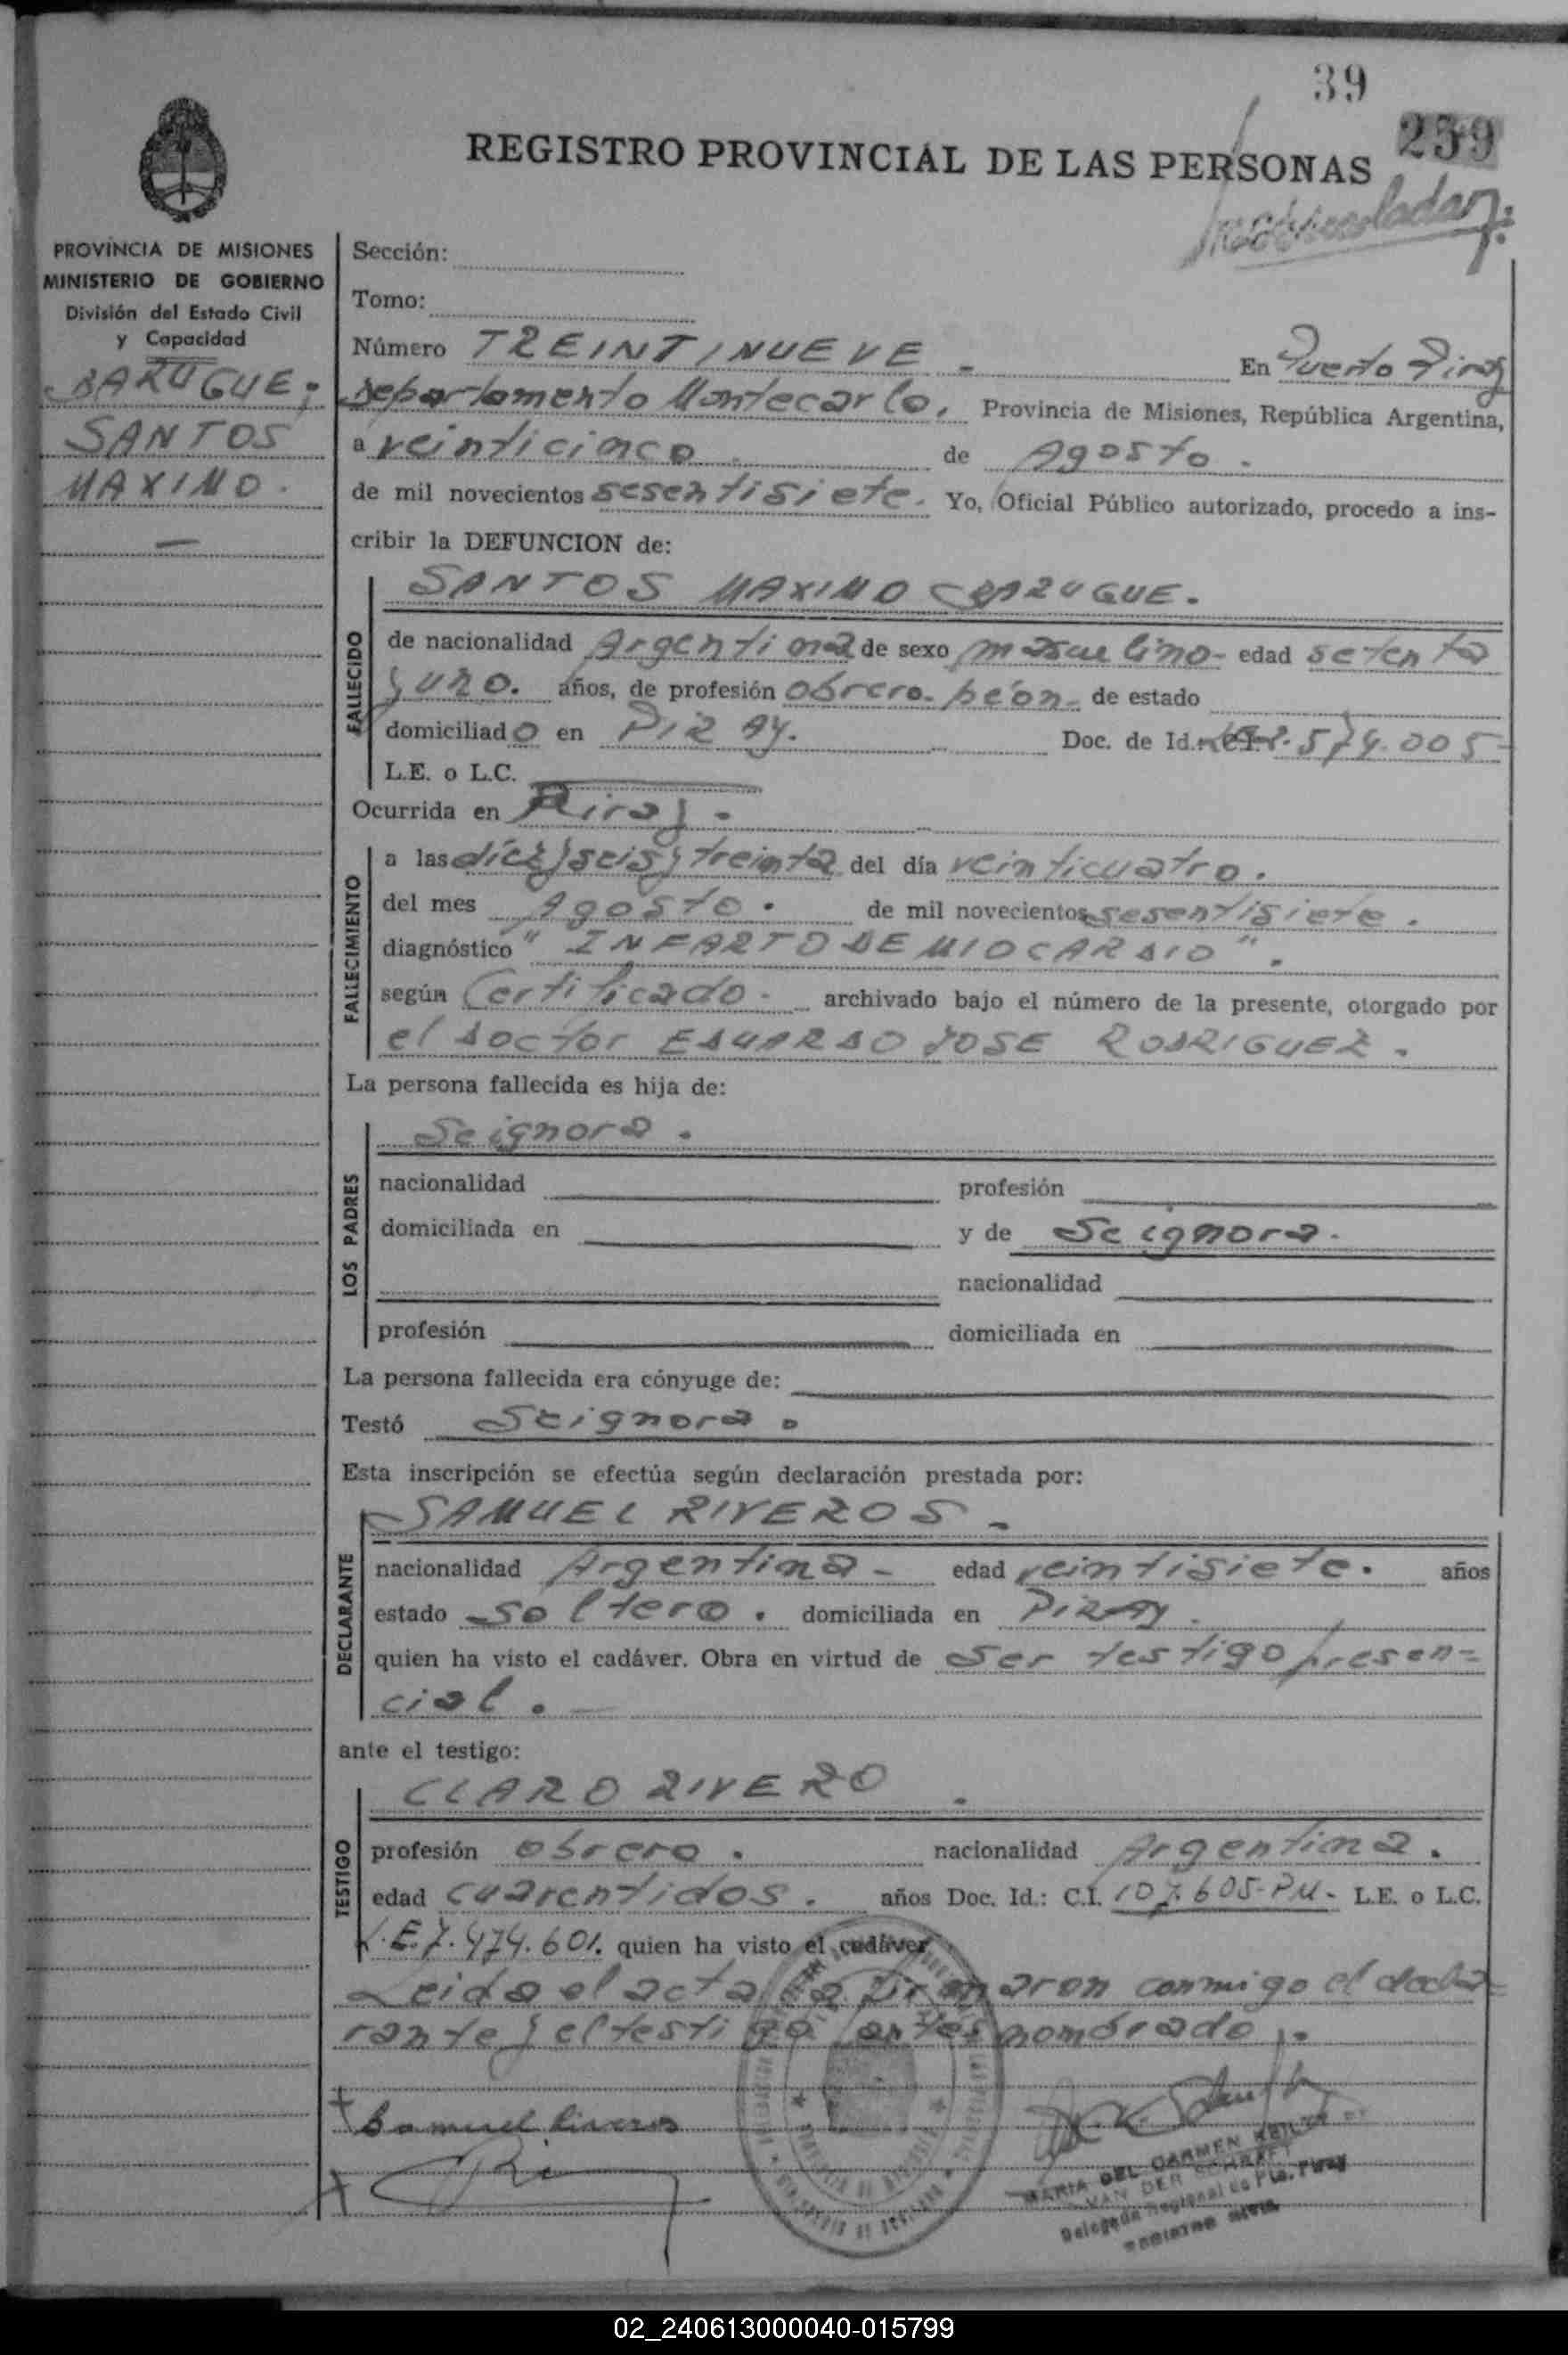 39
239
REGISTRO PROVINCIAL DE LAS PERSONAS
PROVINCIA DE MISIONES
MINISTERIO DE GOBIERNO
División del Estado Civil
y Capacidad
BARUGUE;
SANTOS
MAXIMO.
Sección:
Tomo:
Número TREINTINUEVE. En Puerto Piray
Departamento Montecarlo, Provincia de Misiones, República Argentina,
a veinticinco de Agosto.
de mil novecientos sesentisiete. Yo, Oficial Público autorizado, procedo a ins-
cribir la DEFUNCION de:
SANTOS MAXIMO BARUGUE.
FALLECIDO
de nacionalidad Argentina de sexo masculino- edad setenta
y uno. años, de profesión obrero-peón- de estado
domiciliado en PIRAY. Doc. de Id. 574.005
L.E. o L.C.
Ocurrida en Piray.
FALLECIMIENTO
a las diez y seis y treinta del día veinticuatro.
del mes Agosto. de mil novecientos sesentisiete.
diagnóstico "INFARTO DE MIOCARDIO".
según Certificado- archivado bajo el número de la presente, otorgado por
el Doctor EDUARDO JOSE RODRIGUEZ.
La persona fallecida es hija de:
LOS PADRES
Se ignora.
nacionalidad profesión
domiciliada en y de Se ignora.
nacionalidad
profesión domiciliada en
La persona fallecida era cónyuge de:
Testó Se ignora.
Esta inscripción se efectúa según declaración prestada por:
DECLARANTE
SAMUEL RIVEROS.
nacionalidad Argentina- edad veintisiete. años
estado soltero. domiciliada en PIRAY.
quien ha visto el cadáver. Obra en virtud de ser testigo presen-
cial.
ante el testigo:
TESTIGO
CLARO RIVERO.
profesión obrero. nacionalidad Argentina.
edad cuarentidos. años Doc. Id.: C.I. 107.605-P.M. L.E. o L.C.
L.E.7.474.601. quien ha visto el cadáver
Leida el acta la firmaron conmigo el decla-
rante y el testigo antes nombrado.
Samuel Riveros
MARIA DEL CARMEN
VAN DER
Delegada Regional de Pto. Piray
02_240613000040-015799